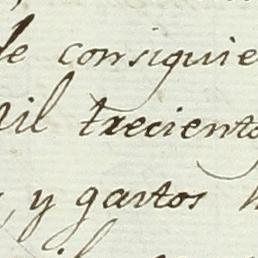 de consiguie
mil trecient
y gastos